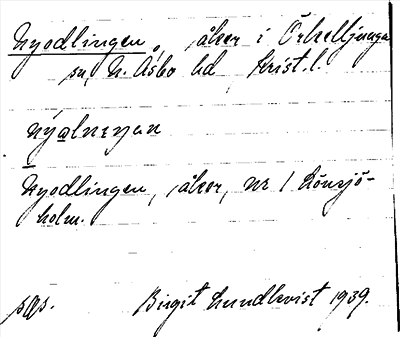 Nyodlingen, åker i Örkelljunga
sn, N. Åsbo hd, Krist. l.
nyọalnıŋan
Nyodlingen, åker, nr 1 Lönsjö-
holm.
sgs. Birgit Lundkvist 1939.